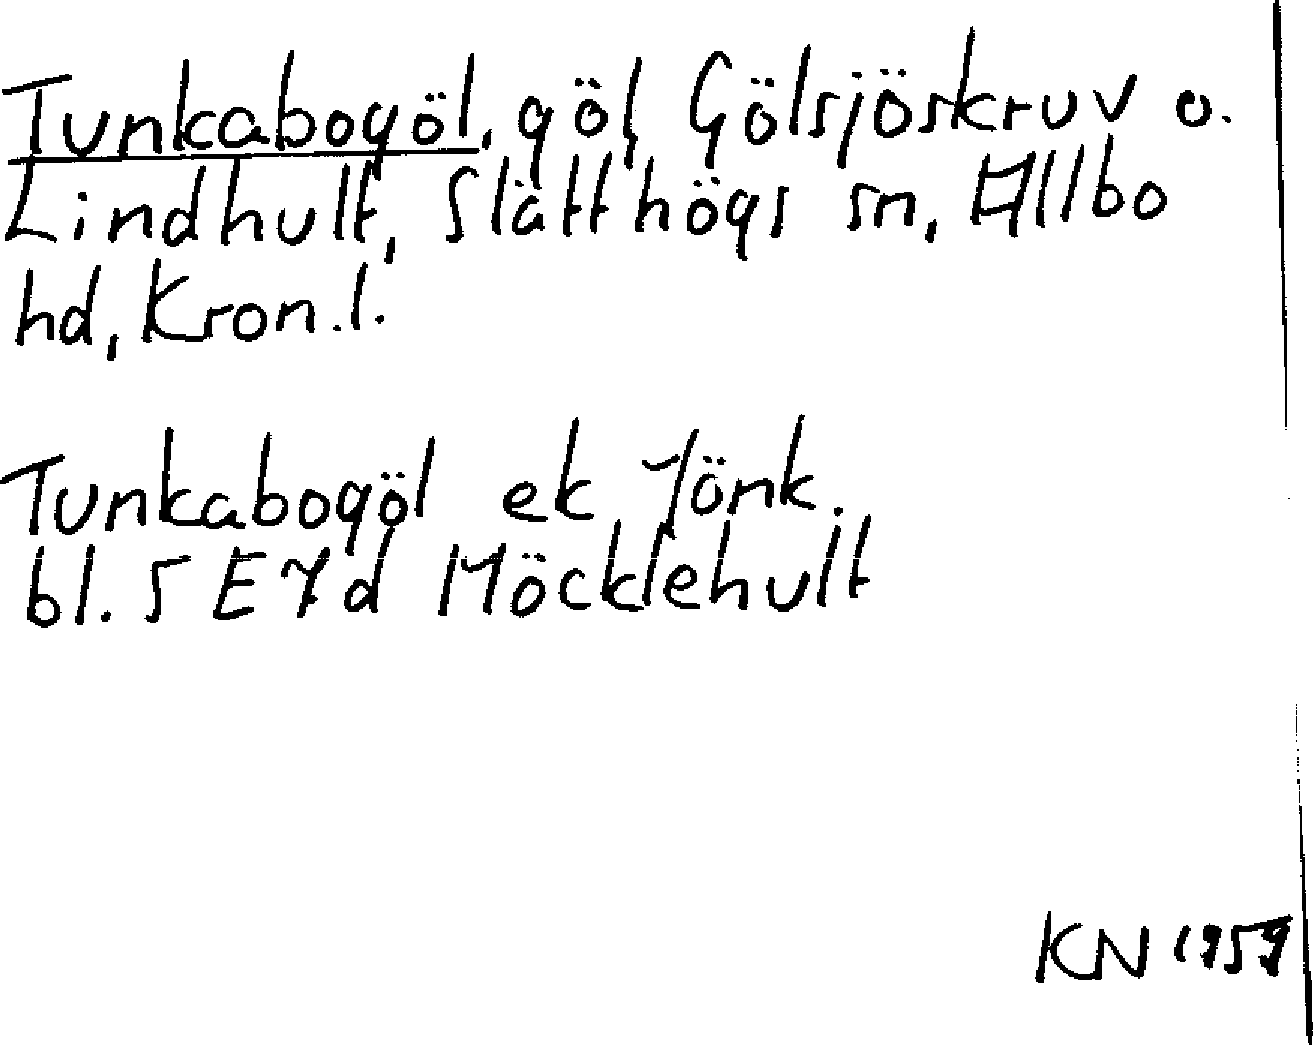 Tunkabogöl, göl, Gölsjöskruv o.
Lindhult, Slätthögs sn, Allbo
hd, Kron.l.
Tunkabogöl ek Jönk.
bl. 5 E 7d Möcklehult
KN 1959